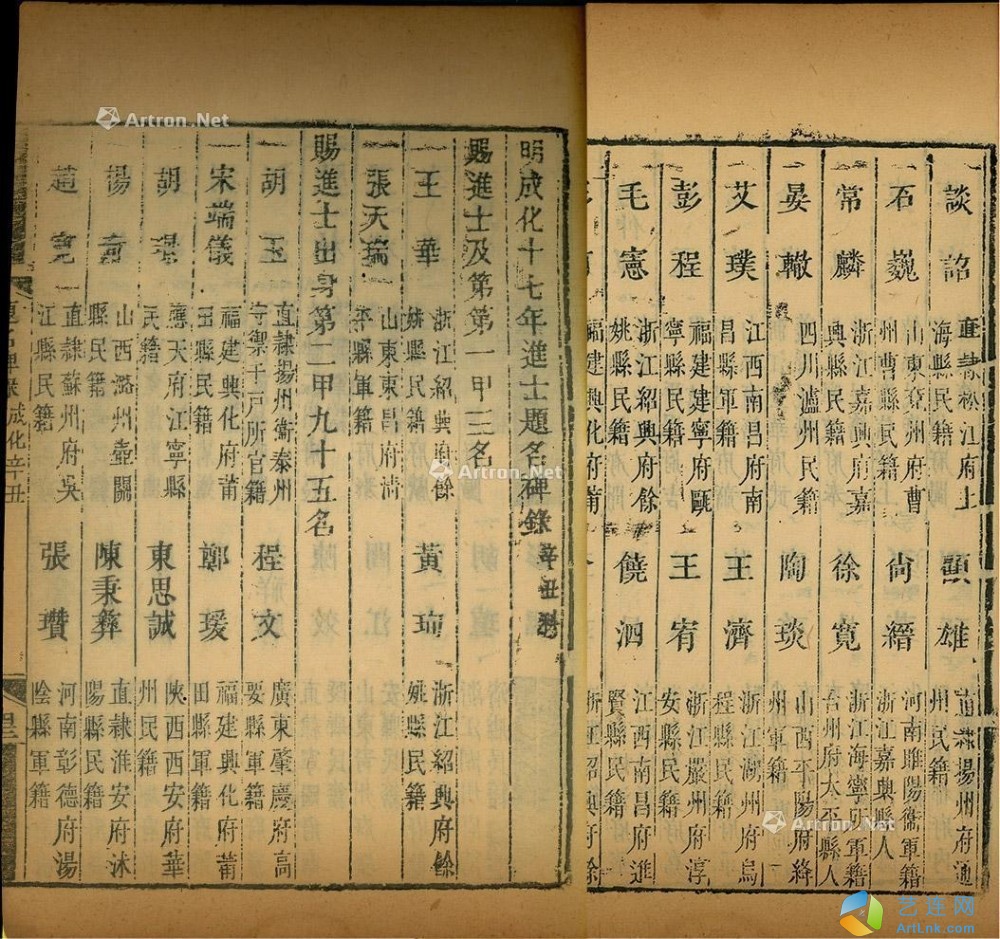 談詔 直隸松江府上海縣民籍 顧雄 直隸揚州府通州民籍
石巍 山東兗州府曹州曹縣民籍 尙縉 河南睢陽衞軍籍浙江嘉興縣人
常麟 浙江嘉興府嘉興縣民籍 徐寬 浙江海寧所軍籍台州府太平縣人
晏轍 四川瀘州民籍 陶琰 山西平陽府絳州軍籍
艾璞 江西南昌府南昌縣軍籍 王濟 浙江湖州府烏程縣民籍
彭程 福建建寧府甌寧縣民籍 王宥 浙江嚴州府淳安縣民籍
毛憲 浙江紹興府餘姚縣民籍 饒泗 江西南昌府進賢縣民籍
福建興化府莆 浙江紹興府餘
明成化十七年進士題名碑錄 辛丑科
賜進士及第第一甲三名
王華 浙江紹興府餘姚縣民籍 黃珣 浙江紹興府餘姚縣民籍
張天瑞 山東東昌府淸平縣軍籍
賜進士出身第二甲九十五名
胡玉 直隸揚州衞泰州守禦千戶所官籍 程文 廣東肇慶府高要縣軍籍
宋端儀 福建興化府莆田縣軍籍 鄭瑗 福建興化府莆田縣軍籍
胡 應天府江寧縣民籍 東思誠 陝西西安府華州民籍
楊 山西潞州壺關縣民籍 陳秉彝 直隸淮安府沭陽縣民籍
趙寬 直隸蘇州府吳江縣民籍 張瓚 河南彰德府湯陰縣軍籍
題名碑錄 成化辛丑
Artron.Net
Artron.Net
Artron.Net
艺连网
ArtLnk.com